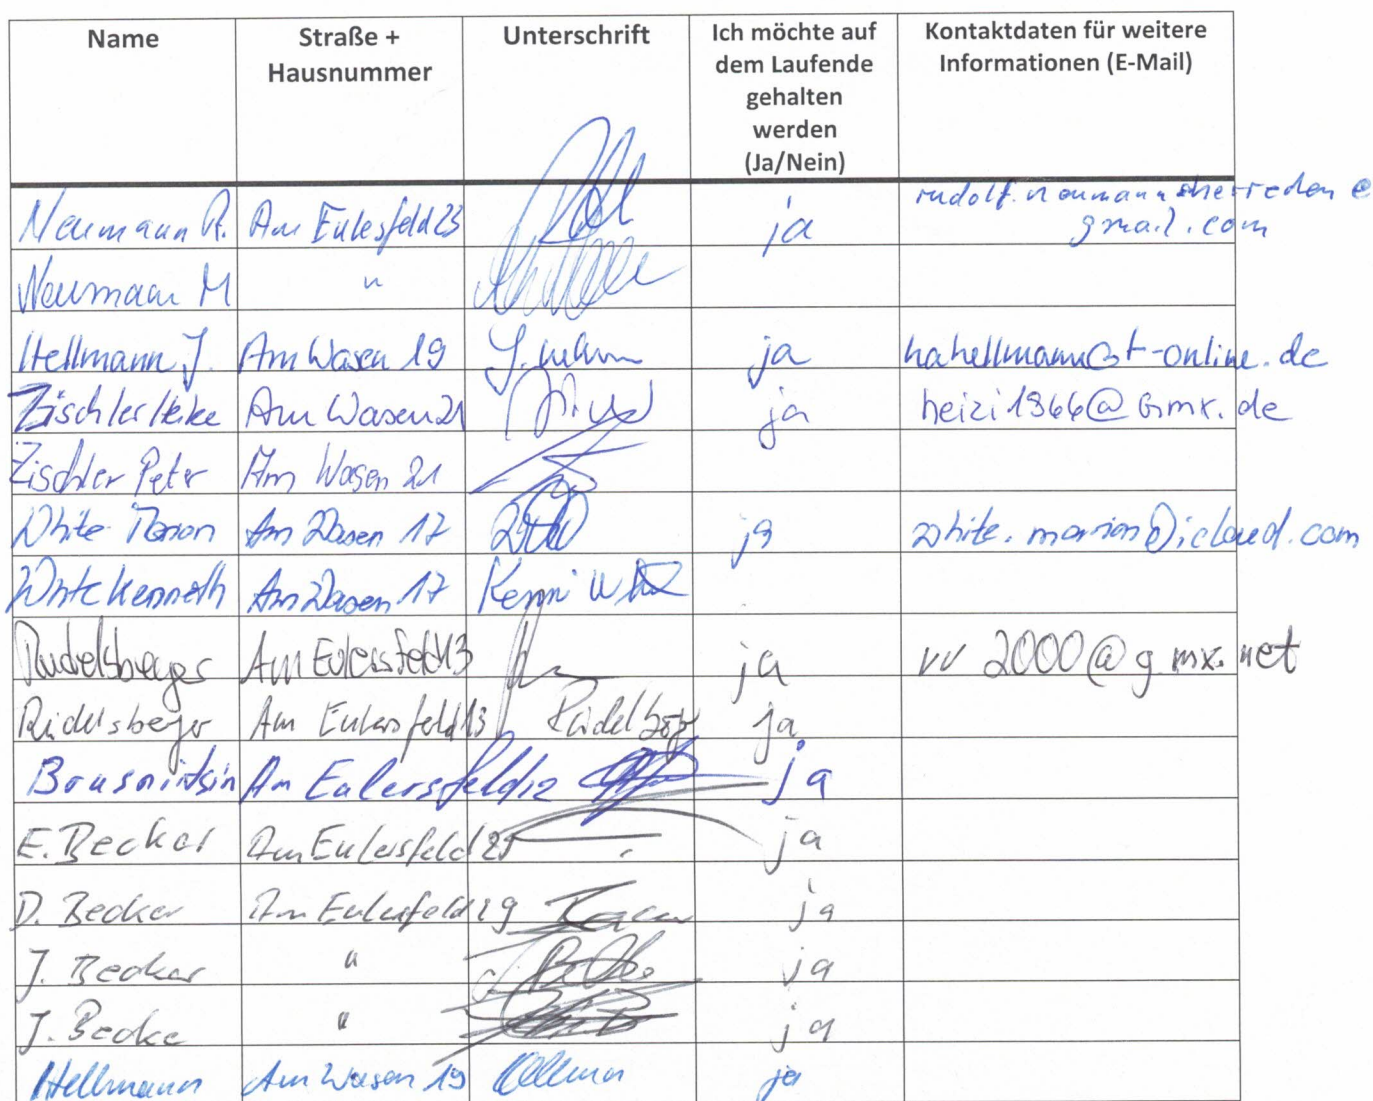 Name Straße + Hausnummer Unterschrift Ich möchte auf dem Laufende gehalten werden (Ja/Nein) Kontaktdaten für weitere Informationen (E-Mail)
Neumann R. Am Eulesfeld 23 ja rudolf.neumann @ gmail.com
Neumann M "
Hellmann J. Am Wasen 19 ja hahellmann@t-online.de
Zischler Heike Am Wasen 21 ja heizi1366@Gmx.de
Zischler Peter Am Wasen 21
White Marion Am Wasen 17 ja white.marion@icloud.com
White Kenneth Am Wasen 17 Kenni
Am Eulersfeld 13 ja vv2000@gmx.net
Am Eulersfeld 13 ja
Am Eulersfeld 12 ja
E. Becker Am Eulersfeld ja
D. Becker Am Eulersfeld 29 ja
J. Becker " ja
J. Becke " ja
Hellmann Am Wasen 19 ja